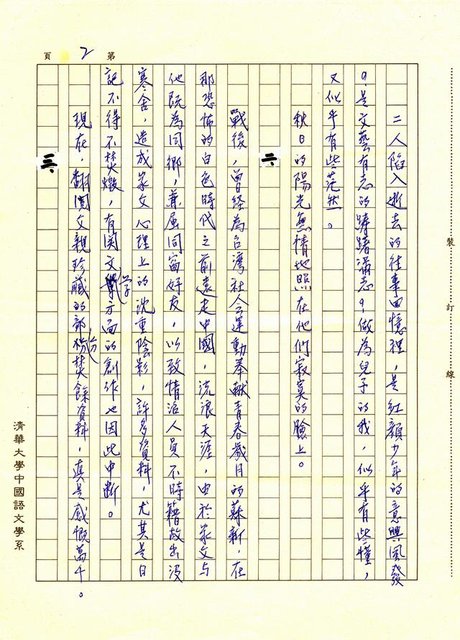 第 2 頁
二人陷入逝去的往事回憶裡,是紅顏少年的意興風發
?是文藝有志的躊躇滿志?做為兒子的我,似乎有些懂,
又似乎有些茫然。
秋日的陽光無情地照在他們寂寞的臉上。
二、
戰後,曾經為台灣社會運動奉獻青春歲月的蘇新,在
那恐怖的白色時代之前遠走中國,流浪天涯,由於家父與
他既為同鄉,兼屬同窗好友,以致情治人員不時藉故出沒
寒舍,造成家父心理上的沈重陰影,許多資料,尤其是日
記不得不焚燬,有関文學方面的創作也因此中斷。
現在,翻閱父親珍藏的部份焚餘資料,真是感慨萬千。
三、
裝訂線
清華大學中國語文學系